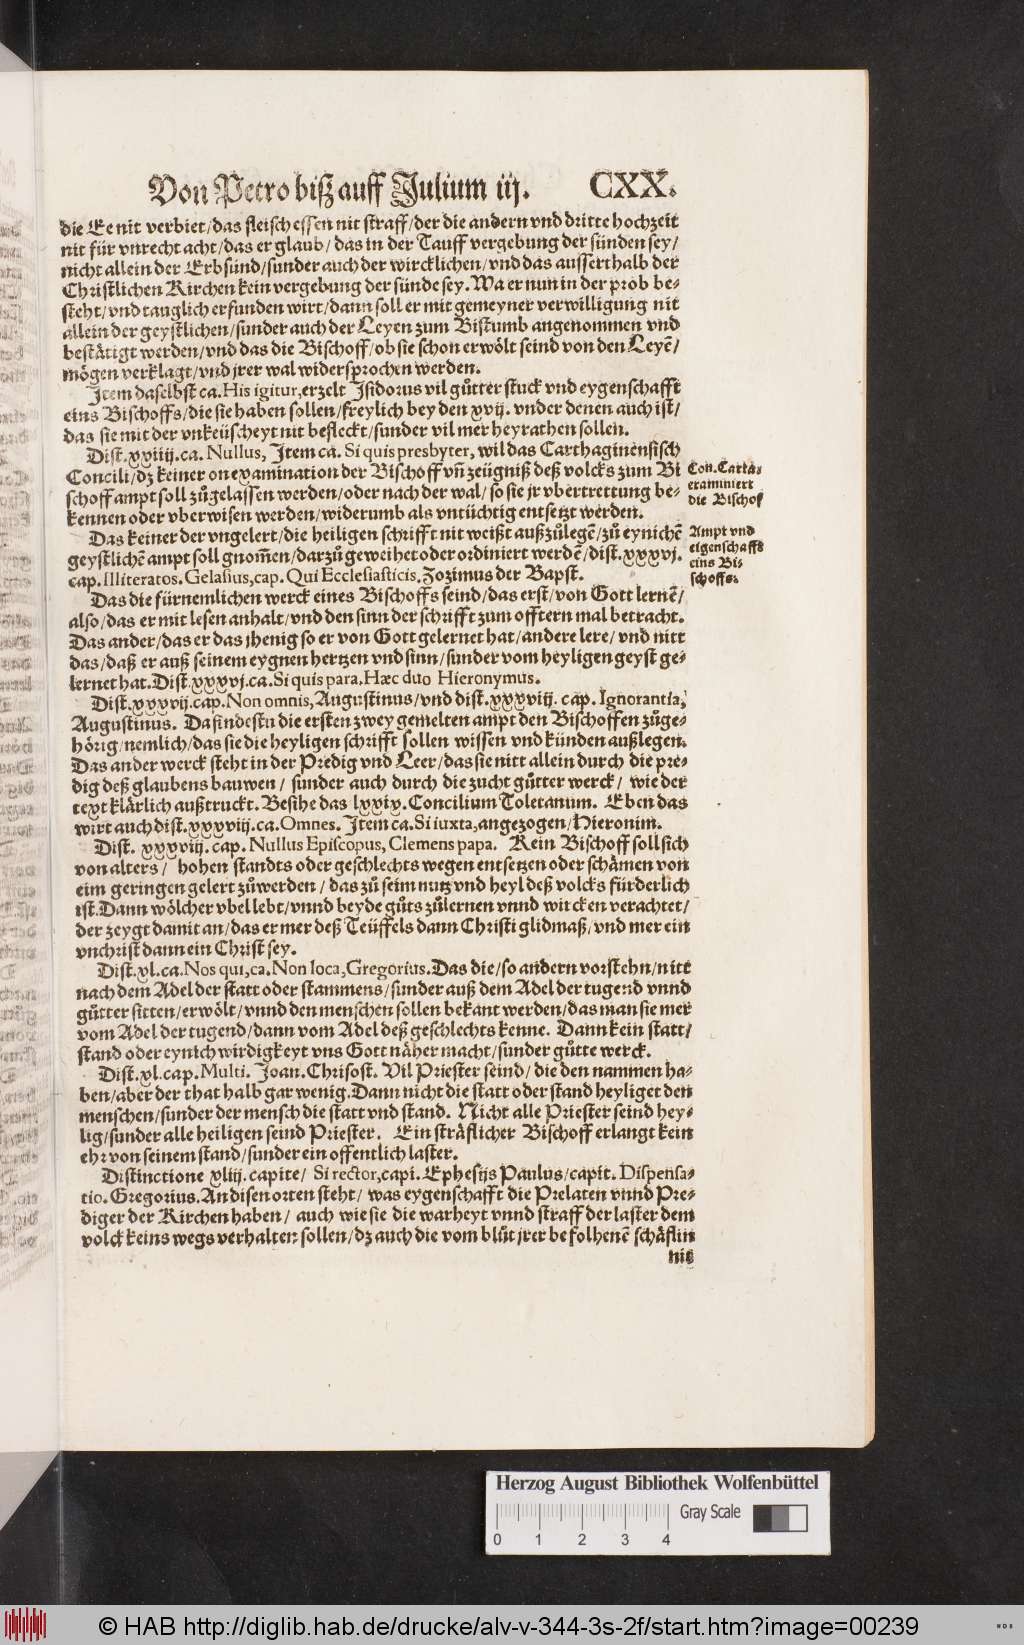 Von Petro biß auff Julium iij. CXX.
die Ee nit verbiet/das fleisch essen nit straff/der die andern vnd dritte hochzeit
nit für vnrecht acht/das er glaub/das in der Tauff vergebung der sünden sey/
nicht allein der Erbsünd/sunder auch der wircklichen/vnd das ausserthalb der
Christlichen Kirchen kein vergebung der sünde sey. Wa er nun in der prob be-
steht/vnd tauglich erfunden wirt/dann soll er mit gemeyner verwilligung nit
allein der geystlichen/sunder auch der Leyen zum Bistumb angenommen vnd
bestätigt werden/vnd das die Bischoff/ob sie schon erwölt seind von den Leyẽ/
mögen verklagt/vnd jrer wal widersprochen werden.
Item daselbst ca. His igitur, erzelt Isidorus vil gůtter stuck vnd eygenschafft
eins Bischoffs/die sie haben sollen/freylich bey den xvij. vnder denen auch ist/
das sie mit der vnkeüscheyt nit befleckt/sunder vil mer heyrathen sollen.
Dist. xxiiij. ca. Nullus, Item ca. Si quis presbyter, wil das Carthaginensisch
Concili/dz keiner on examination der Bischoff vñ zeügniß deß volcks zum Bi
schoff ampt soll zůgelassen werden/oder nach der wal/so sie jr vbertrettung be-
kennen oder vberwisen werden/widerumb als vntüchtig entsetzt werden.
Con. Carta.
examiniert
die Bischof
Das keiner der vngelert/die heiligen schrifft nit weißt außzůlegẽ/zů eynichẽ
geystlichẽ ampt soll gnom̃en/darzů geweihet oder ordiniert werdẽ/dist. xxxvj.
cap. Illiteratos. Gelasius, cap. Qui Ecclesiasticis. Zozimus der Bapst.
Ampt vnd
eigenschafft
eins Bi-
schoffs.
Das die fürnemlichen werck eines Bischoffs seind/das erst/von Gott lernẽ/
also/das er mit lesen anhalt/vnd den sinn der schrifft zum offtern mal betracht.
Das ander/das er das jhenig so er von Gott gelernet hat/andere lere/vnd nitt
das/daß er auß seinem eygnen hertzen vnd sinn/sunder vom heyligen geyst ge-
lernet hat. Dist. xxxvj. ca. Si quis para. Hæc duo Hieronymus.
Dist. xxxvij. cap. Non omnis, Augustinus/vnd dist. xxxviij. cap. Ignorantia,
Augustinus. Da findestu die ersten zwey gemelten ampt den Bischoffen zůge-
hörig/nemlich/das sie die heyligen schrifft sollen wissen vnd künden außlegen.
Das ander werck steht in der Predig vnd Leer/das sie nitt allein durch die pre-
dig deß glaubens bauwen/ sunder auch durch die zucht gůtter werck/ wie der
text klärlich außtruckt. Besihe das lxxix. Concilium Toletanum. Eben das
wirt auch dist. xxxviij. ca. Omnes. Item ca. Si iuxta, angezogen/Hieronim.
Dist. xxxviij. cap. Nullus Episcopus, Clemens papa. Kein Bischoff soll sich
von alters/ hohen standts oder geschlechts wegen entsetzen oder schämen von
eim geringen gelert zůwerden/das zů seim nutz vnd heyl deß volcks fürderlich
ist. Dann wölcher vbel lebt/vnnd beyde gůts zůlernen vnnd wircken verachtet/
der zeygt damit an/das er mer deß Teüffels dann Christi glidmaß/vnd mer ein
vnchrist dann ein Christ sey.
Dist. xl. ca. Nos qui, ca. Non loca, Gregorius. Das die/so andern vorstehn/nitt
nach dem Adel der statt oder stammens/sunder auß dem Adel der tugend vnnd
gůtter sitten/erwölt/vnnd den menschen sollen bekant werden/das man sie mer
vom Adel der tugend/dann vom Adel deß geschlechts kenne. Dann kein statt/
stand oder eynich wirdigkeyt vns Gott näher macht/sunder gůtte werck.
Dist. xl. cap. Multi. Joan. Chrisost. Vil Priester seind/die den nammen ha-
ben/aber der that halb gar wenig. Dann nicht die statt oder stand heyliget den
menschen/sunder der mensch die statt vnd stand. Nicht alle Priester seind hey-
lig/sunder alle heiligen seind Priester. Ein sträflicher Bischoff erlangt kein
ehr von seinem stand/sunder ein offentlich laster.
Distinctione xliij. capite/ Si rector, capi. Ephesijs Paulus/capit. Dispensa-
tio. Gregorius. An disen orten steht/ was eygenschafft die Prelaten vnnd Pre-
diger der Kirchen haben/ auch wie sie die warheyt vnnd straff der laster dem
volck keins wegs verhalten sollen/dz auch die vom blůt jrer befolhenẽ schäflin
nit
Herzog August Bibliothek Wolfenbüttel
0 1 2 3 4 Gray Scale
© HAB http://diglib.hab.de/drucke/alv-v-344-3s-2f/start.htm?image=00239